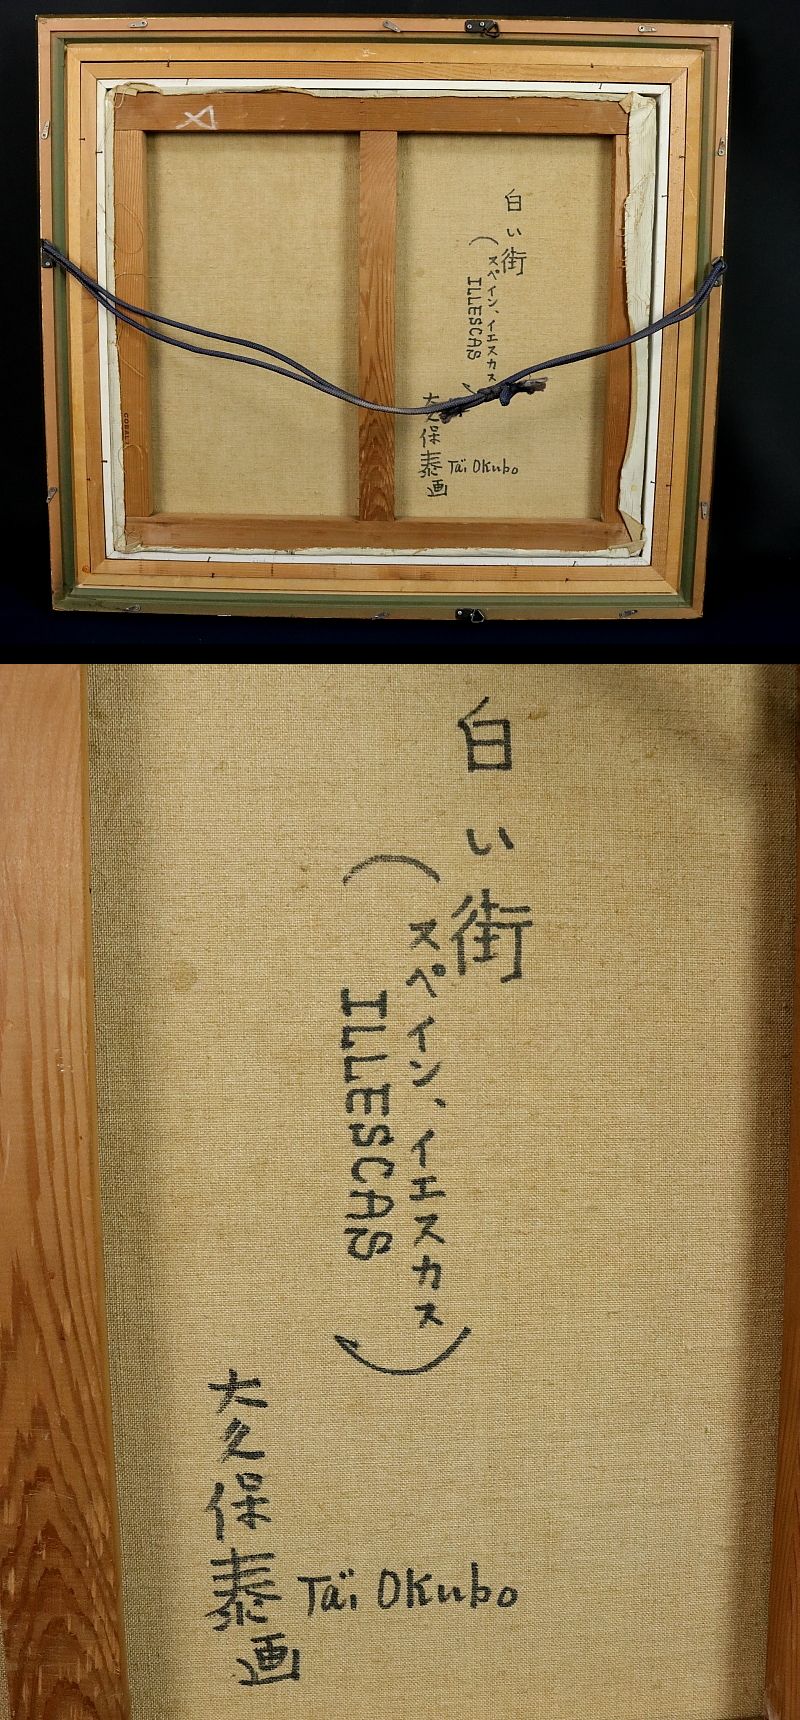 白い街
(スペイン、イエスカス
ILLESCAS)
大久保泰画
Taïi Okubo
白い街
(スペイン、イエスカス
ILLESCAS)
大久保泰画
Taïi Okubo